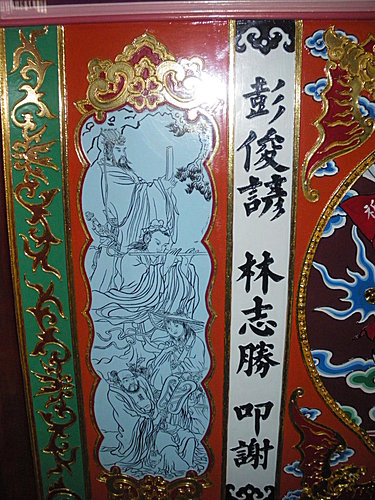 彭俊諺 林志勝 叩謝